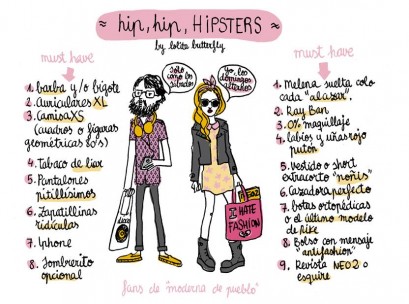 hip, hip, HIPSTERS
by lolita butterfly
must have
1. barba y/o bigote
2. Auriculares XL
3. Camisa XS
(cuadros o figuras
geométricas 80's)
4. Tabaco de liar
5. Pantalones
pitillísimos
6. Zapatillinas
ridículas
7. Iphone
8. Sombrerito
opcional
Sólo
como los
sábados!
Yo, los
domingos
alternos
I HATE
FASHION
fans de "moderna de pueblo"
must have
1. Melena suelta colo
cada "al asar".
2. Ray Ban
3. 0% maquillaje
4. labios y uñas rojo
putón
5. vestido o short
extracorto "ñoñis"
6. Cazadora perfecto
7. botas ortopédicas
o el último modelo
de Nike
8. Bolso con mensaje
"antifashion"
9. Revista NEO2 o
esquire